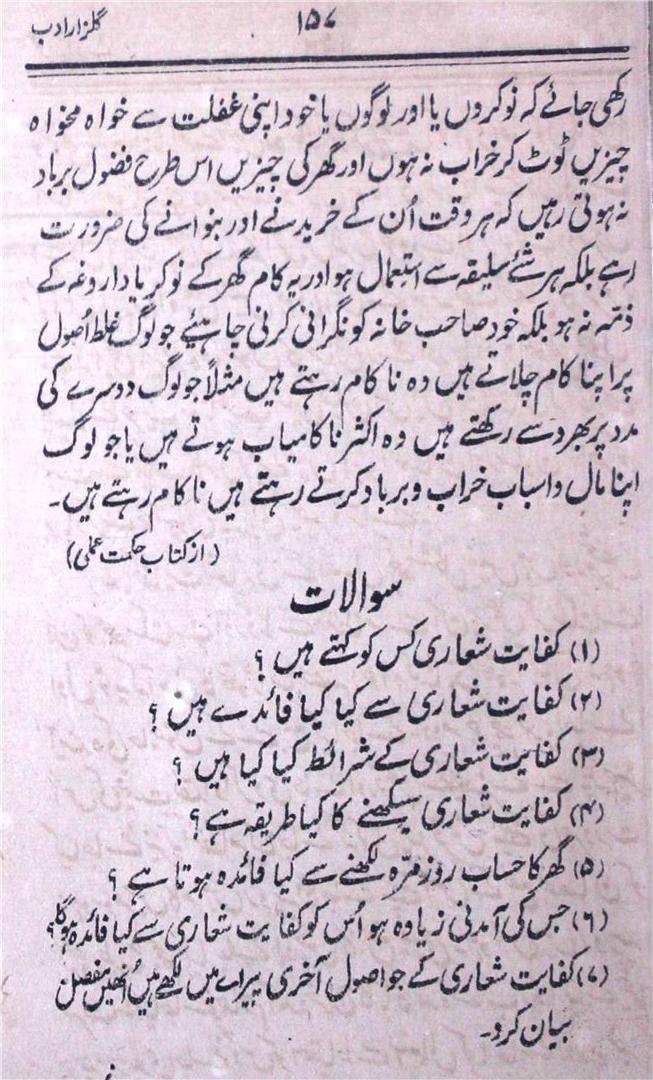 گلزار ادب
۱۵۷
رکھی جائے کہ نوکروں یا اور لوگوں یا خود اپنی غفلت سے خواہ مخواہ
چیزیں ٹوٹ کر خراب نہ ہوں اور گھر کی چیزیں اس طرح فضول برباد
نہ ہوتی رہیں کہ ہر وقت اُن کے خریدنے اور بنوانے کی ضرورت
رہے بلکہ ہر شئے سلیقہ سے استعمال ہو اور یہ کام گھر کے نوکر یا داروغہ کے
ذمّہ نہ ہو بلکہ خود صاحب خانہ کو نگرانی کرنی چاہیئے جو لوگ غلط اُصول
پر اپنا کام چلاتے ہیں وہ ناکام رہتے ہیں مثلاً جو لوگ دوسرے کی
مدد پر بھروسے رکھتے ہیں وہ اکثر ناکامیاب ہوتے ہیں یا جو لوگ
اپنا مال و اسباب خراب و برباد کرتے رہتے ہیں ناکام رہتے ہیں۔
(از کتاب حکمت عملی)
سوالات
(۱) کفایت شعاری کس کو کہتے ہیں ؟
(۲) کفایت شعاری سے کیا کیا فائدے ہیں ؟
(۳) کفایت شعاری کے شرائط کیا کیا ہیں ؟
(۴) کفایت شعاری سیکھنے کا کیا طریقہ ہے ؟
(۵) گھر کا حساب روزمرّہ لکھنے سے کیا فائدہ ہوتا ہے ؟
(۶) جس کی آمدنی زیادہ ہو اُس کو کفایت شعاری سے کیا فائدہ ہوگا؟
(۷) کفایت شعاری کے جو اصول آخری پیراے میں لکھے ہیں اُنھیں مفصل
بیان کرو۔